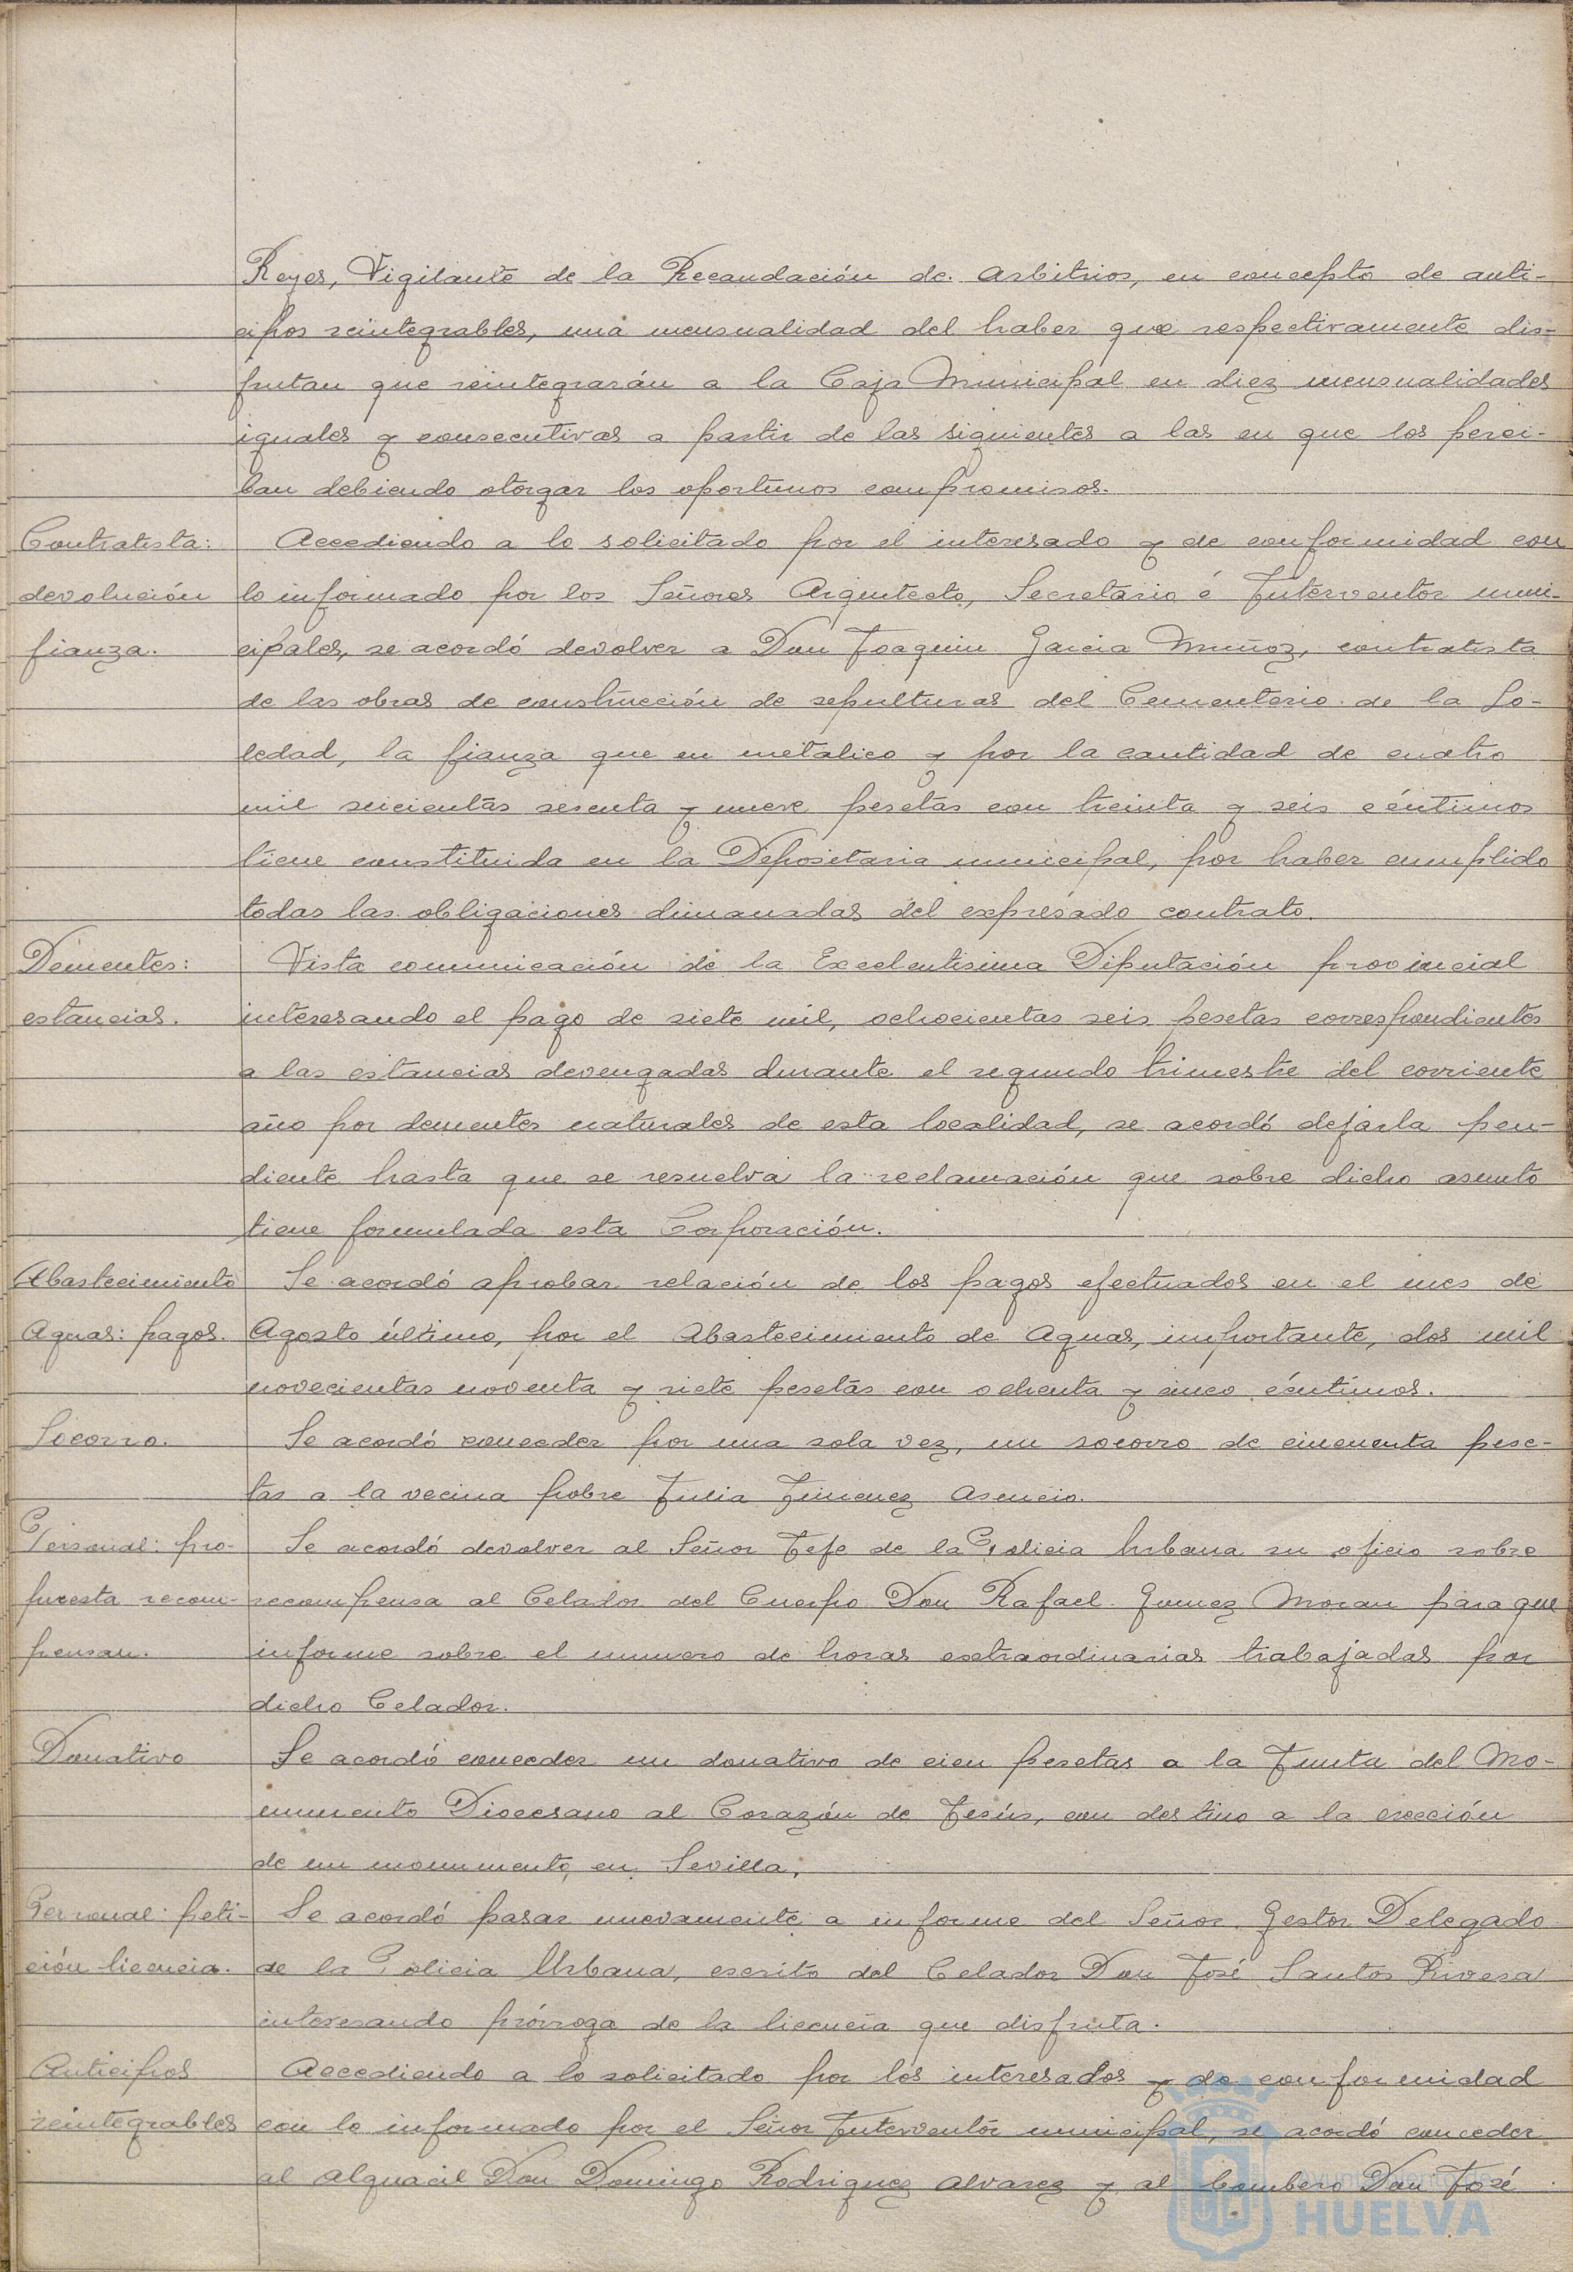 Reyes, Vigilante de la Recaudación de Arbitrios, en concepto de anti-
cipos reintegrables, una mensualidad del haber que respectivamente dis-
frutan que reintegrarán a la Caja Municipal en diez mensualidades
iguales y consecutivas a partir de las siguientes a las en que los perci-
ban debiendo otorgar los oportunos compromisos.
Contratista:
devolución
fianza.
Accediendo a lo solicitado por el interesado y de conformidad con
lo informado por los Señores Arquitecto, Secretario é Interventor muni-
cipales, se acordó devolver a Don Joaquin Garcia Muñoz, contratista
de las obras de construcción de sepulturas del Cementerio de la So-
ledad, la fianza que en metalico y por la cantidad de cuatro
mil seicientas sesenta y nueve pesetas con treinta y seis céntimos
tiene constituida en la Depositaria municipal, por haber cumplido
todas las obligaciones dimanadas del expresado contrato.
Dementes:
estancias.
Vista comunicación de la Excelentisima Diputación provincial
interesando el pago de siete mil, ochocientas seis pesetas correspondientes
a las estancias devengadas durante el segundo trimestre del corriente
año por dementes naturales de esta localidad, se acordó dejarla pen-
diente hasta que se resuelva la reclamación que sobre dicho asunto
tiene formulada esta Corporación.
Abastecimiento
Aguas: pagos.
Se acordó aprobar relación de los pagos efectuados en el mes de
Agosto último, por el Abastecimiento de Aguas, importante, dos mil
novecientas noventa y siete pesetas con ochenta y cinco céntimos.
Socorro.
Se acordó conceder por una sola vez, un socorro de cincuenta pese-
tas a la vecina pobre Julia Jimenez Asencio.
Personal: pro-
puesta recom-
pensan.
Se acordó devolver al Señor Jefe de la Policia Urbana su oficio sobre
recompensa al Celador del Cuerpo Don Rafael Gomez Moran para que
informe sobre el numero de horas extraordinarias trabajadas por
dicho Celador.
Donativo
Se acordó conceder un donativo de cien pesetas a la Junta del Mo-
numento Diocesano al Corazón de Jesús, con destino a la erección
de un monumento, en Sevilla.
Personal: peti-
ción licencia.
Se acordó pasar nuevamente a informe del Señor Gestor Delegado
de la Policia Urbana, escrito del Celador Don José Santos Rivera
interesando prórroga de la licencia que disfruta.
Anticipos
reintegrables
Accediendo a lo solicitado por los interesados y de conformidad
con lo informado por el Señor Interventor municipal, se acordó conceder
al Alguacil Don Domingo Rodriguez Alvarez y al bombero Don José
Ayuntamiento de
HUELVA